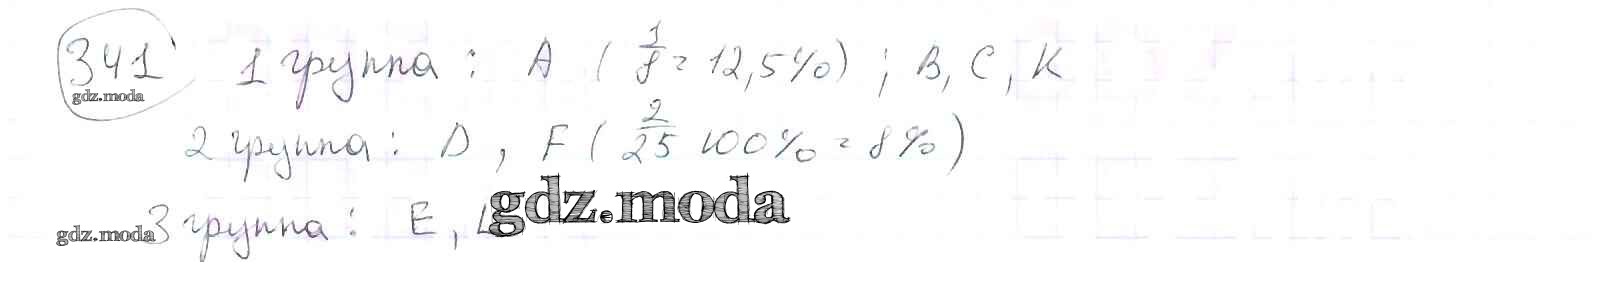 341 1 группа : A ( 1/8 = 12,5%) ; B, C, K
gdz.moda
2 группа : D , F ( 2/25 100% = 8%)
gdz.moda
gdz.moda 3 группа : E , L